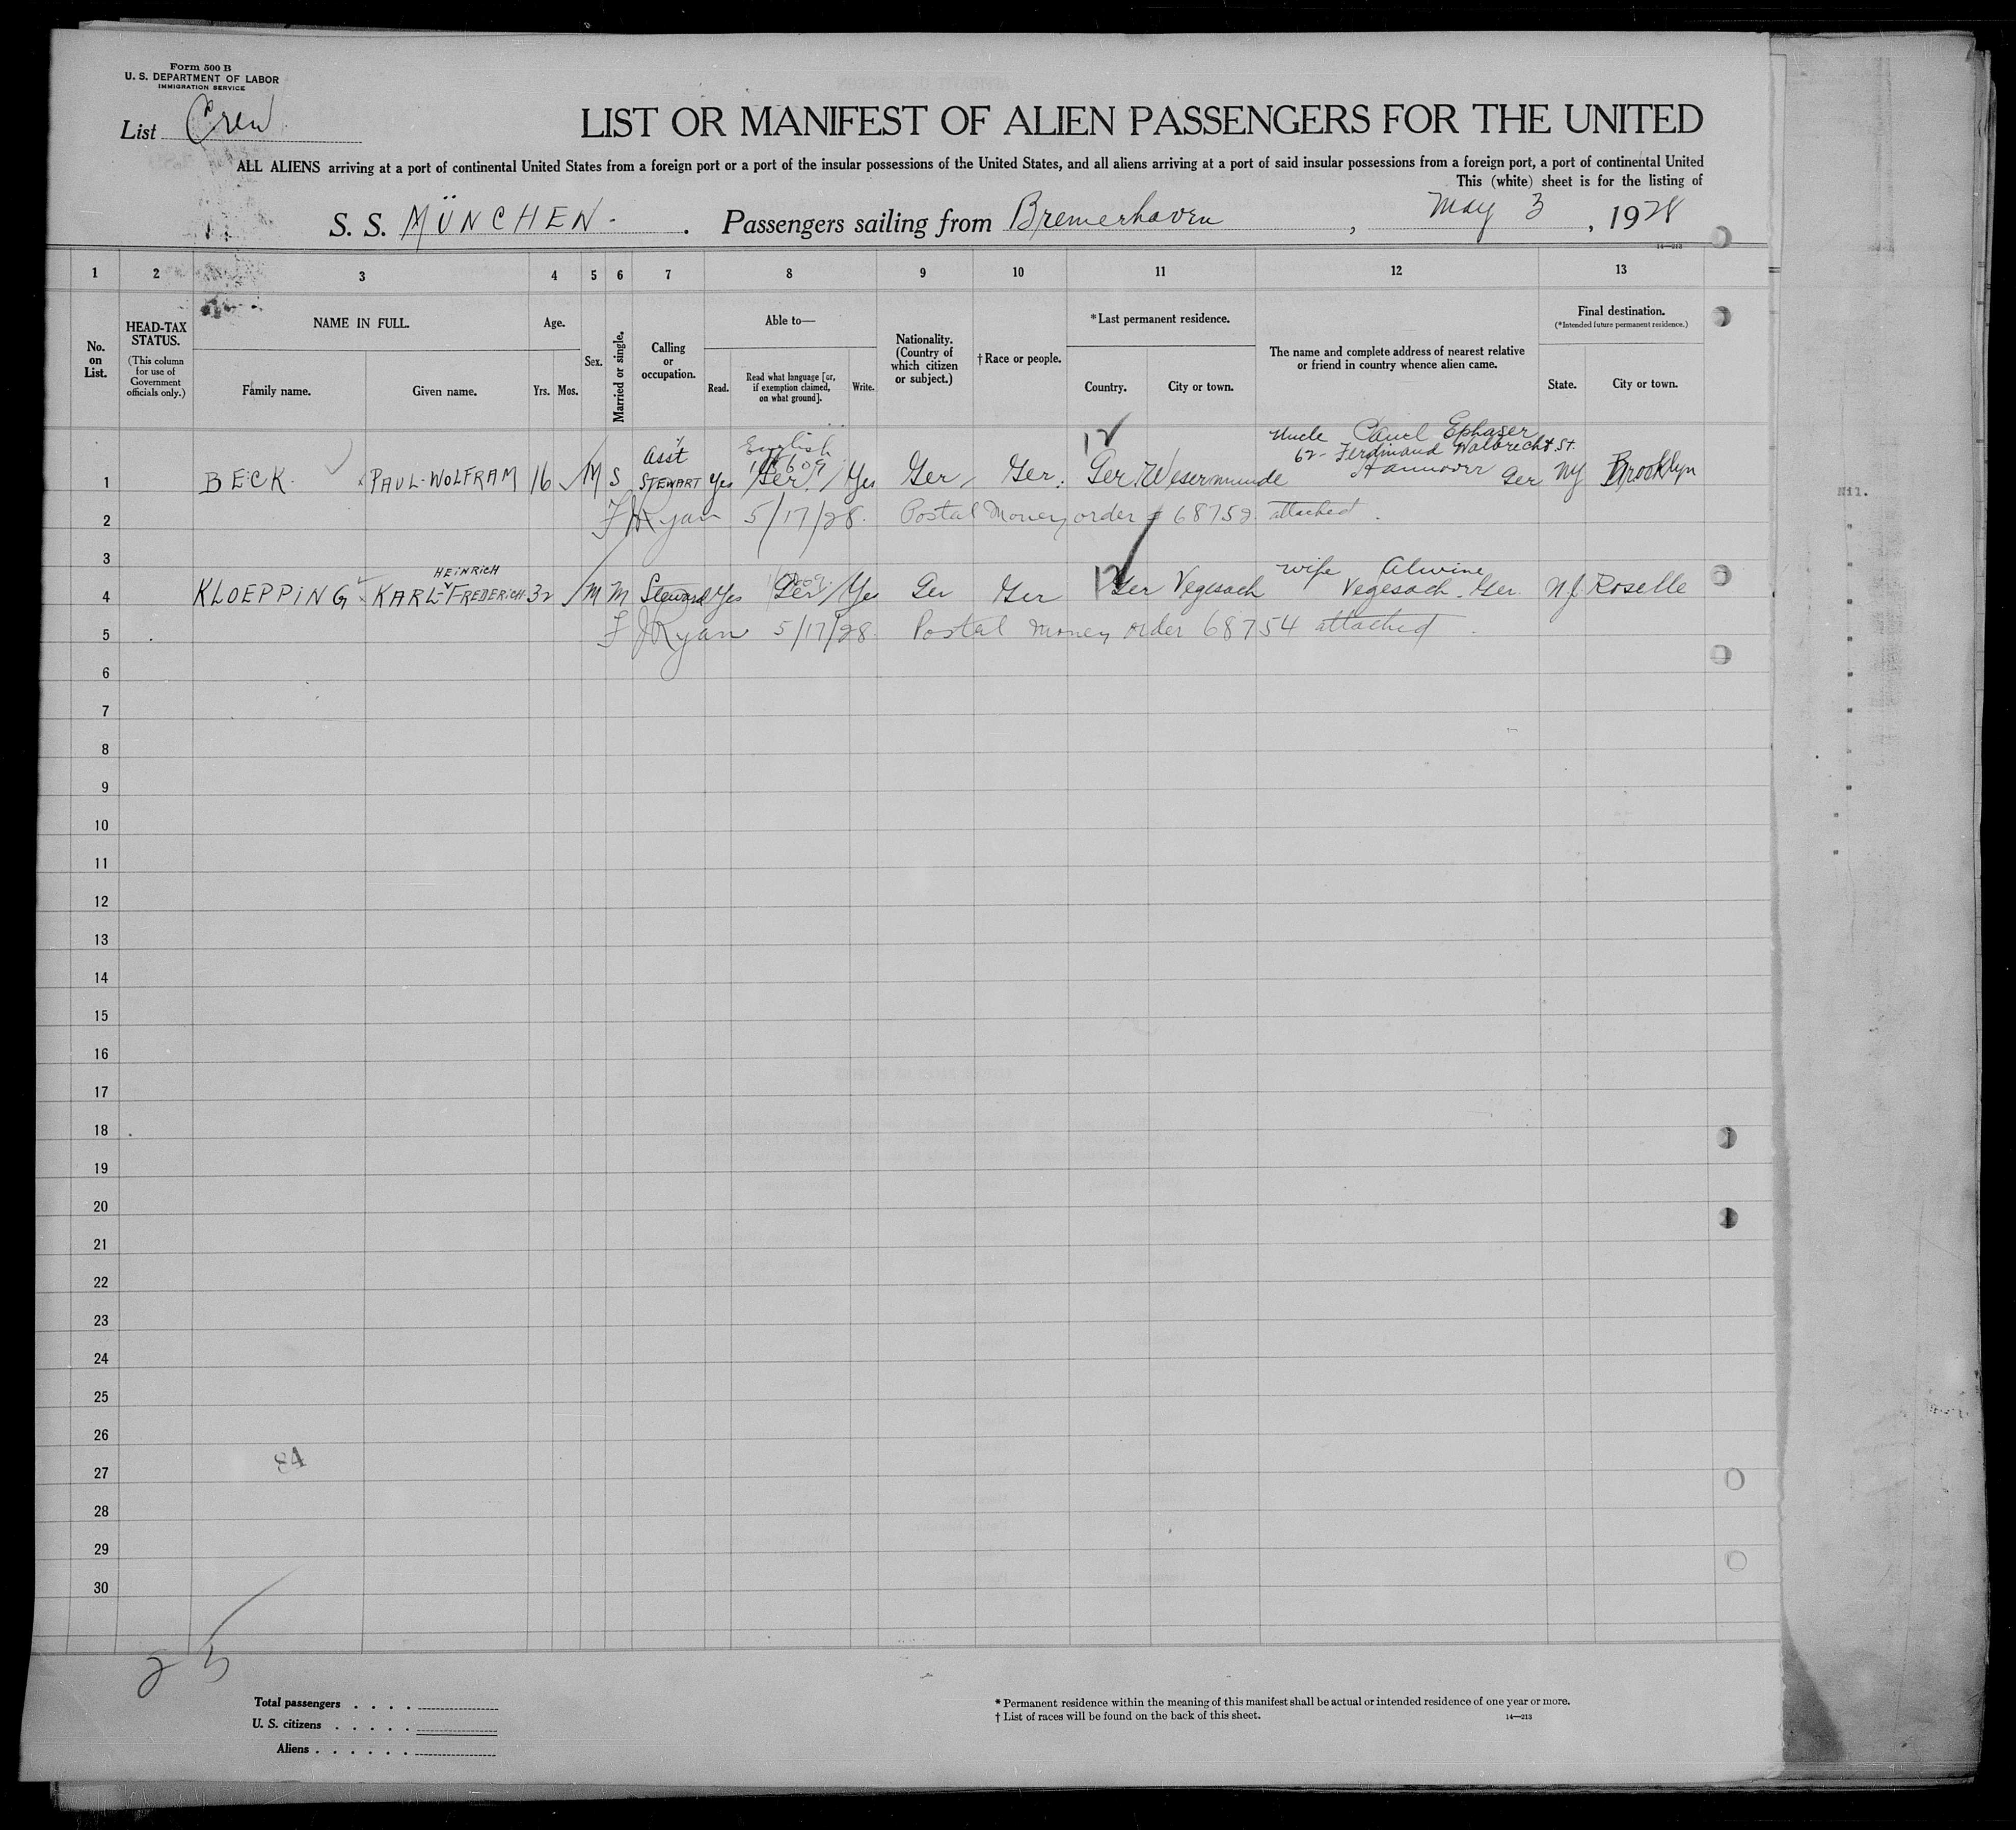 Form 500 B
U. S. DEPARTMENT OF LABOR
IMMIGRATION SERVICE
List Crew
LIST OR MANIFEST OF ALIEN PASSENGERS FOR THE UNITED
ALL ALIENS arriving at a port of continental United States from a foreign port or a port of the insular possessions of the United States, and all aliens arriving at a port of said insular possessions from a foreign port, a port of continental United
This (white) sheet is for the listing of
S. S. MÜNCHEN. Passengers sailing from Bremerhaven, May 3, 1928
14—213
1 2 3 4 5 6 7 8 9 10 11 12 13
No. on List.
HEAD-TAX STATUS.
(This column for use of Government officials only.)
NAME IN FULL.
Family name. Given name.
Age.
Yrs. Mos.
Sex.
Married or single.
Calling or occupation.
Able to—
Read. Read what language [or, if exemption claimed, on what ground]. Write.
Nationality. (Country of which citizen or subject.)
†Race or people.
*Last permanent residence.
Country. City or town.
The name and complete address of nearest relative or friend in country whence alien came.
Final destination.
(*Intended future permanent residence.)
State. City or town.
Nil.
12
Uncle Paul Ephaser
Asst English 62 - Ferdinand Walbrecht St.
Hannover Ger
1 BECK. PAUL-WOLFRAM 16 M S STEWART Yes Ger Yes Ger Ger. Ger Wesermunde NY Brooklyn
2 F J Ryan 5/17/28. Postal Money order # 68752 attached.
3
HEINRICH 12 wife Alwine
4 KLOEPPING KARL-FREDERICH 32 M M Steward Yes Ger Yes Ger Ger Ger Vegesach Vegesach. Ger. N.J. Roselle
5 F J Ryan 5/17/28. Postal Money order 68754 attached.
6
7
8
9
10
11
12
13
14
15
16
17
18
19
20
21
22
23
24
25
26
84
27
28
29
30
25
Total passengers . . . .
U. S. citizens . . . . .
Aliens . . . . . .
* Permanent residence within the meaning of this manifest shall be actual or intended residence of one year or more.
† List of races will be found on the back of this sheet.
14—213